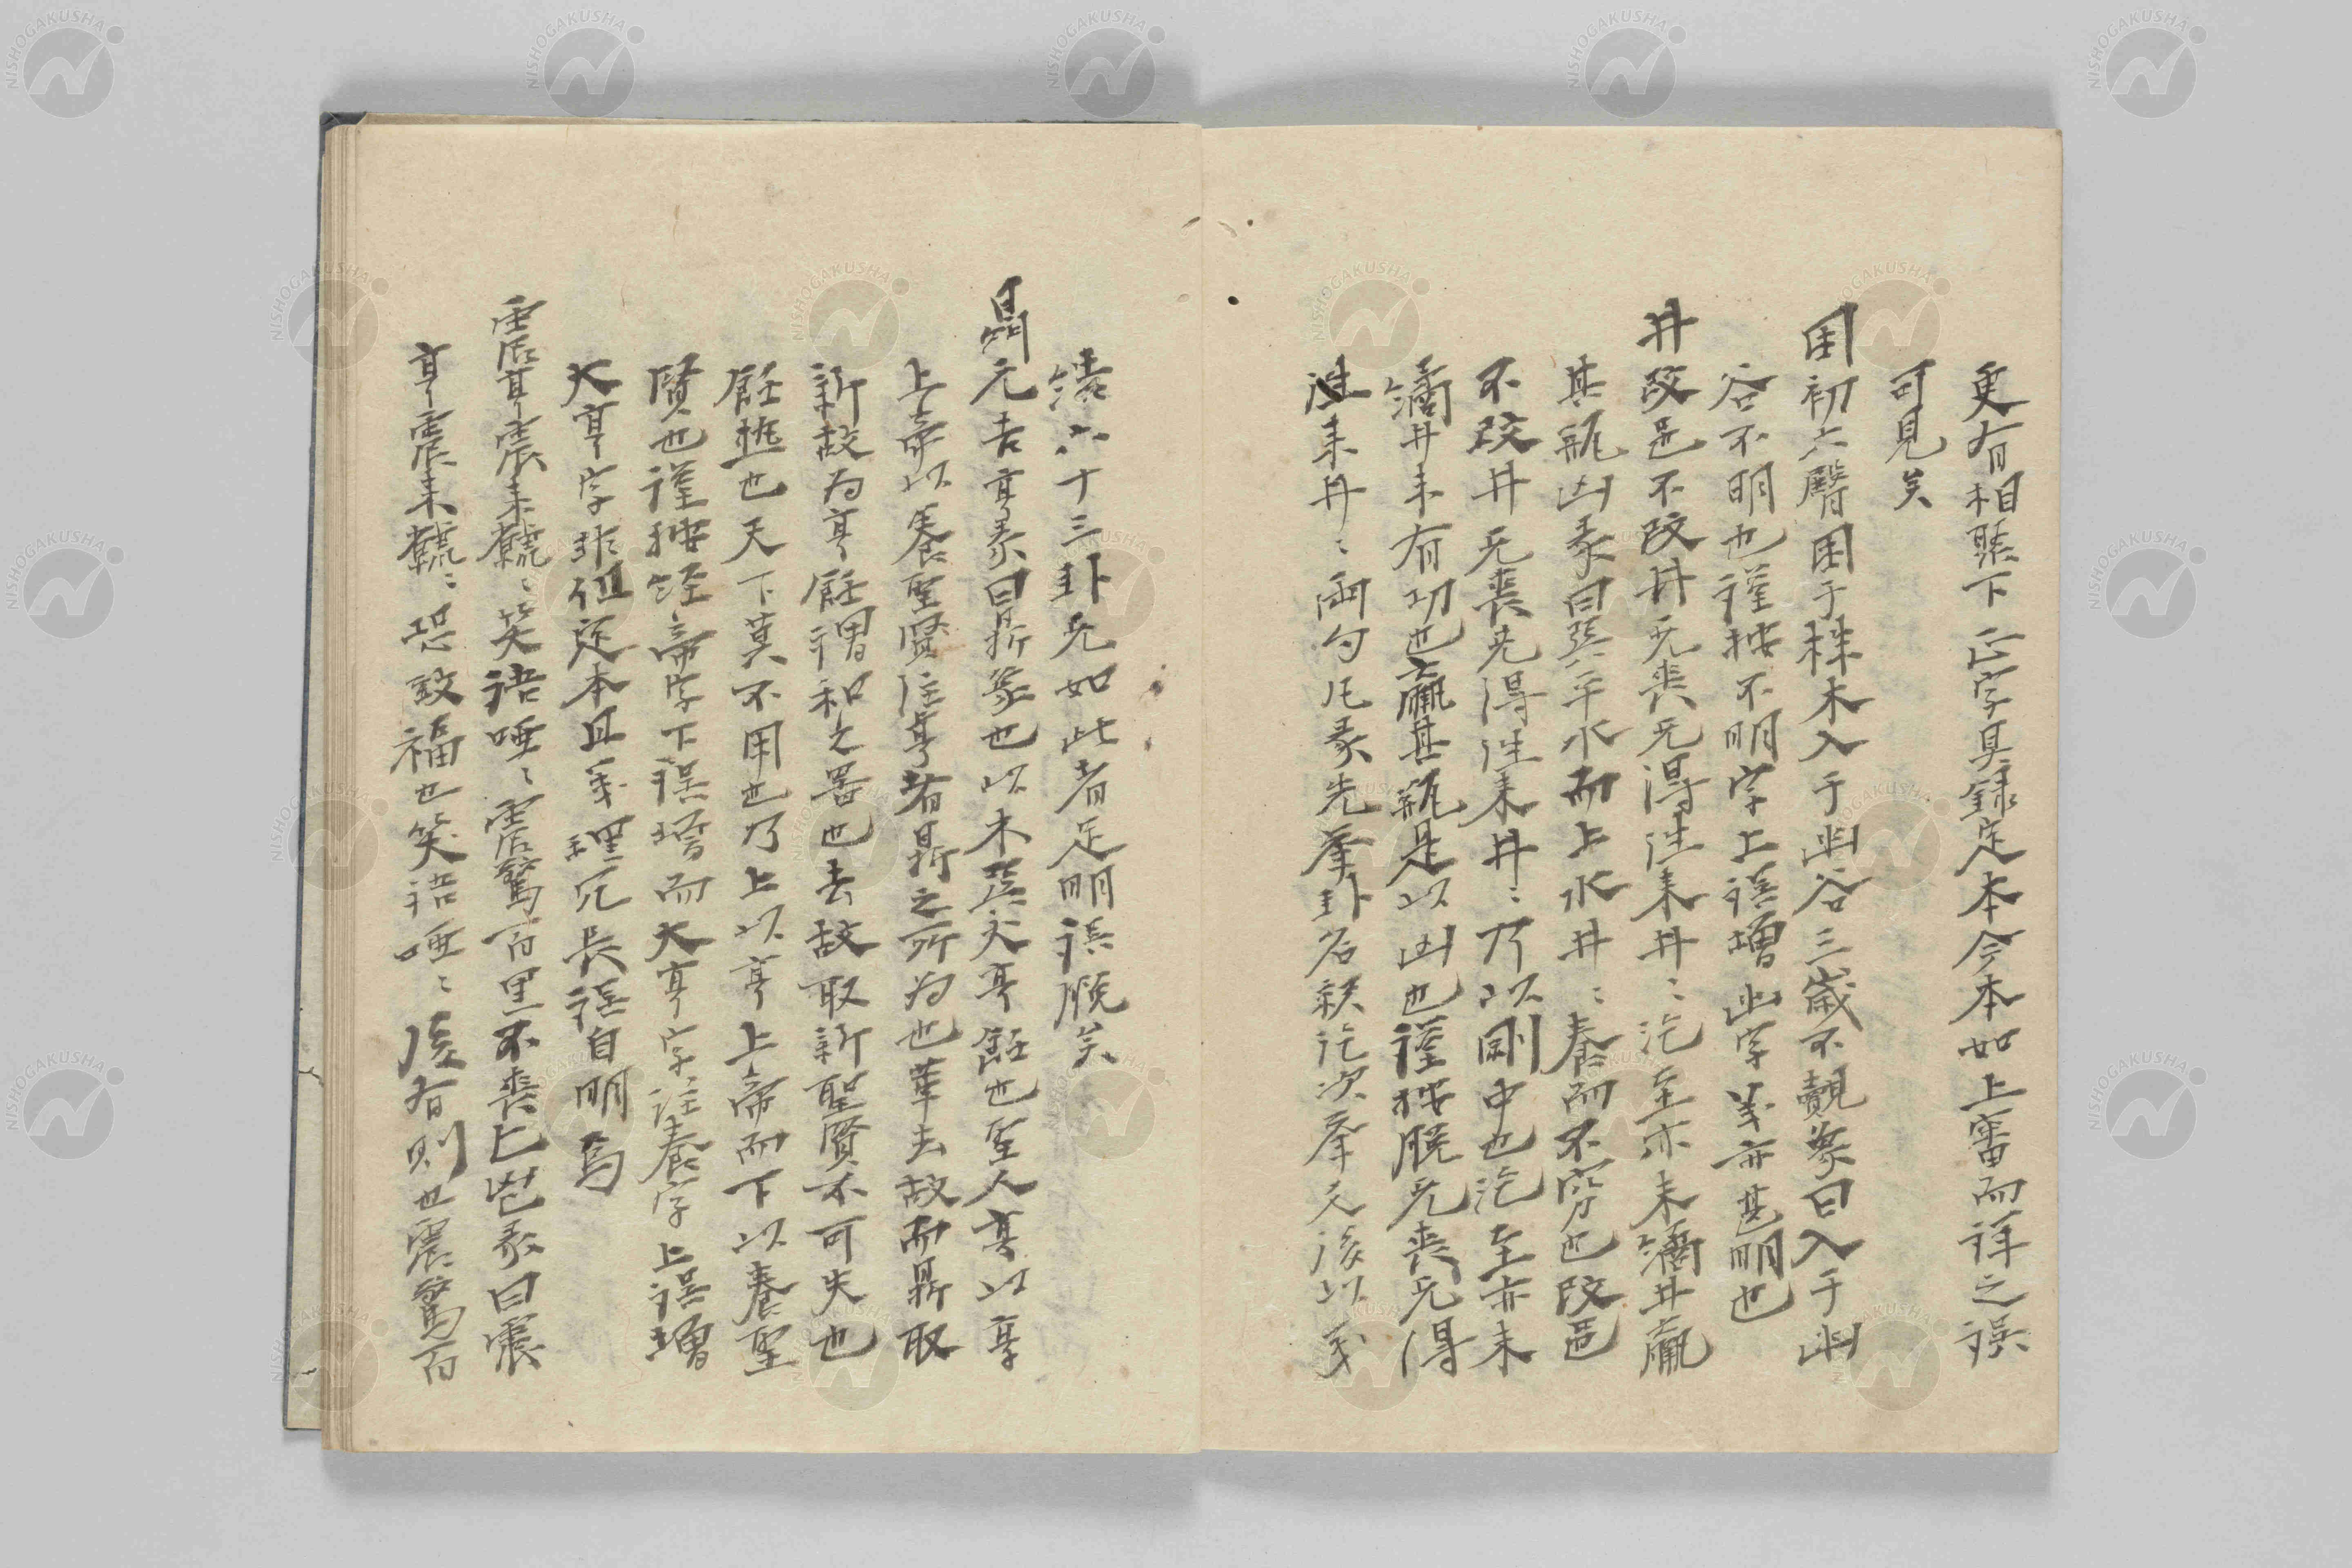 更有相緊下正字具錄定本今本如上審而詳之誤
可見矣
困初六臀困于株木入于幽谷三歲不覿象曰入于幽
谷不明也謹按不明字上誤增幽字義亦甚明也
井改邑不改井无喪无得往來井〻汔至亦未繘井羸
其瓶凶彖曰巽乎水而上水井〻養而不窮也改邑
不改井无喪无得往來井〻乃以剛中也汔至亦未
繘井未有功也羸其瓶是以凶也謹按脫无喪无得
往來井〻兩句凡彖先舉卦名繇訖次舉文後以義
繼六十三卦无如此者足明誤脫矣
鼎元吉亨彖曰鼎象也以木巽火亨飪也聖人亨以享
上帝以養聖賢注亨者鼎之所為也革去故而鼎取
新故為亨飪謂和之器也去故取新聖賢不可失也
飪熟也天下莫不用也乃上以亨上帝而下以養聖
賢也謹按經帝字下誤增而大亨字注養字上誤增
大亨字非但定本且義理冗長誤自明焉
震亨震來虩〻笑語啞〻震驚百里不喪匕鬯彖曰震
亨震來虩〻恐致福也笑語啞〻後有則也震驚百
NISHOGAKUSHA